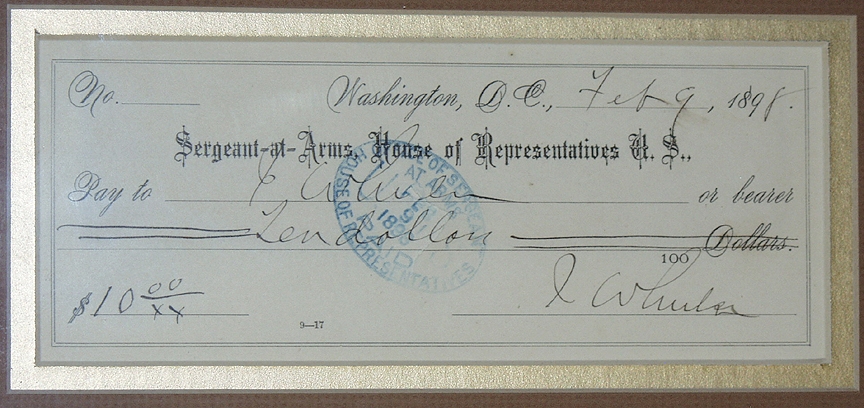 No. Washington, D.C., Feb 9, 1898.
Sergeant-at-Arms, House of Representatives U. S.,
Pay to J Wheeler or bearer
Ten dollars Dollars.
100
$10 00/xx J Wheeler
9—17
HOUSE OF REPRESENTATIVES
OFFICE OF SERGEANT
AT ARMS
PAID